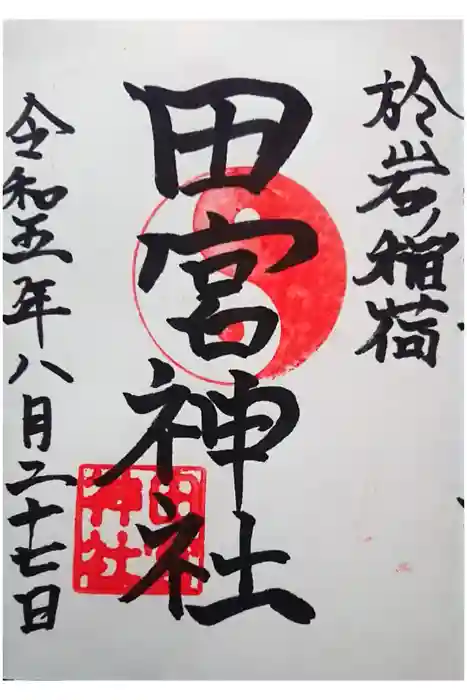 於岩稲荷
田宮神社
令和五年八月二十七日
田宮神社